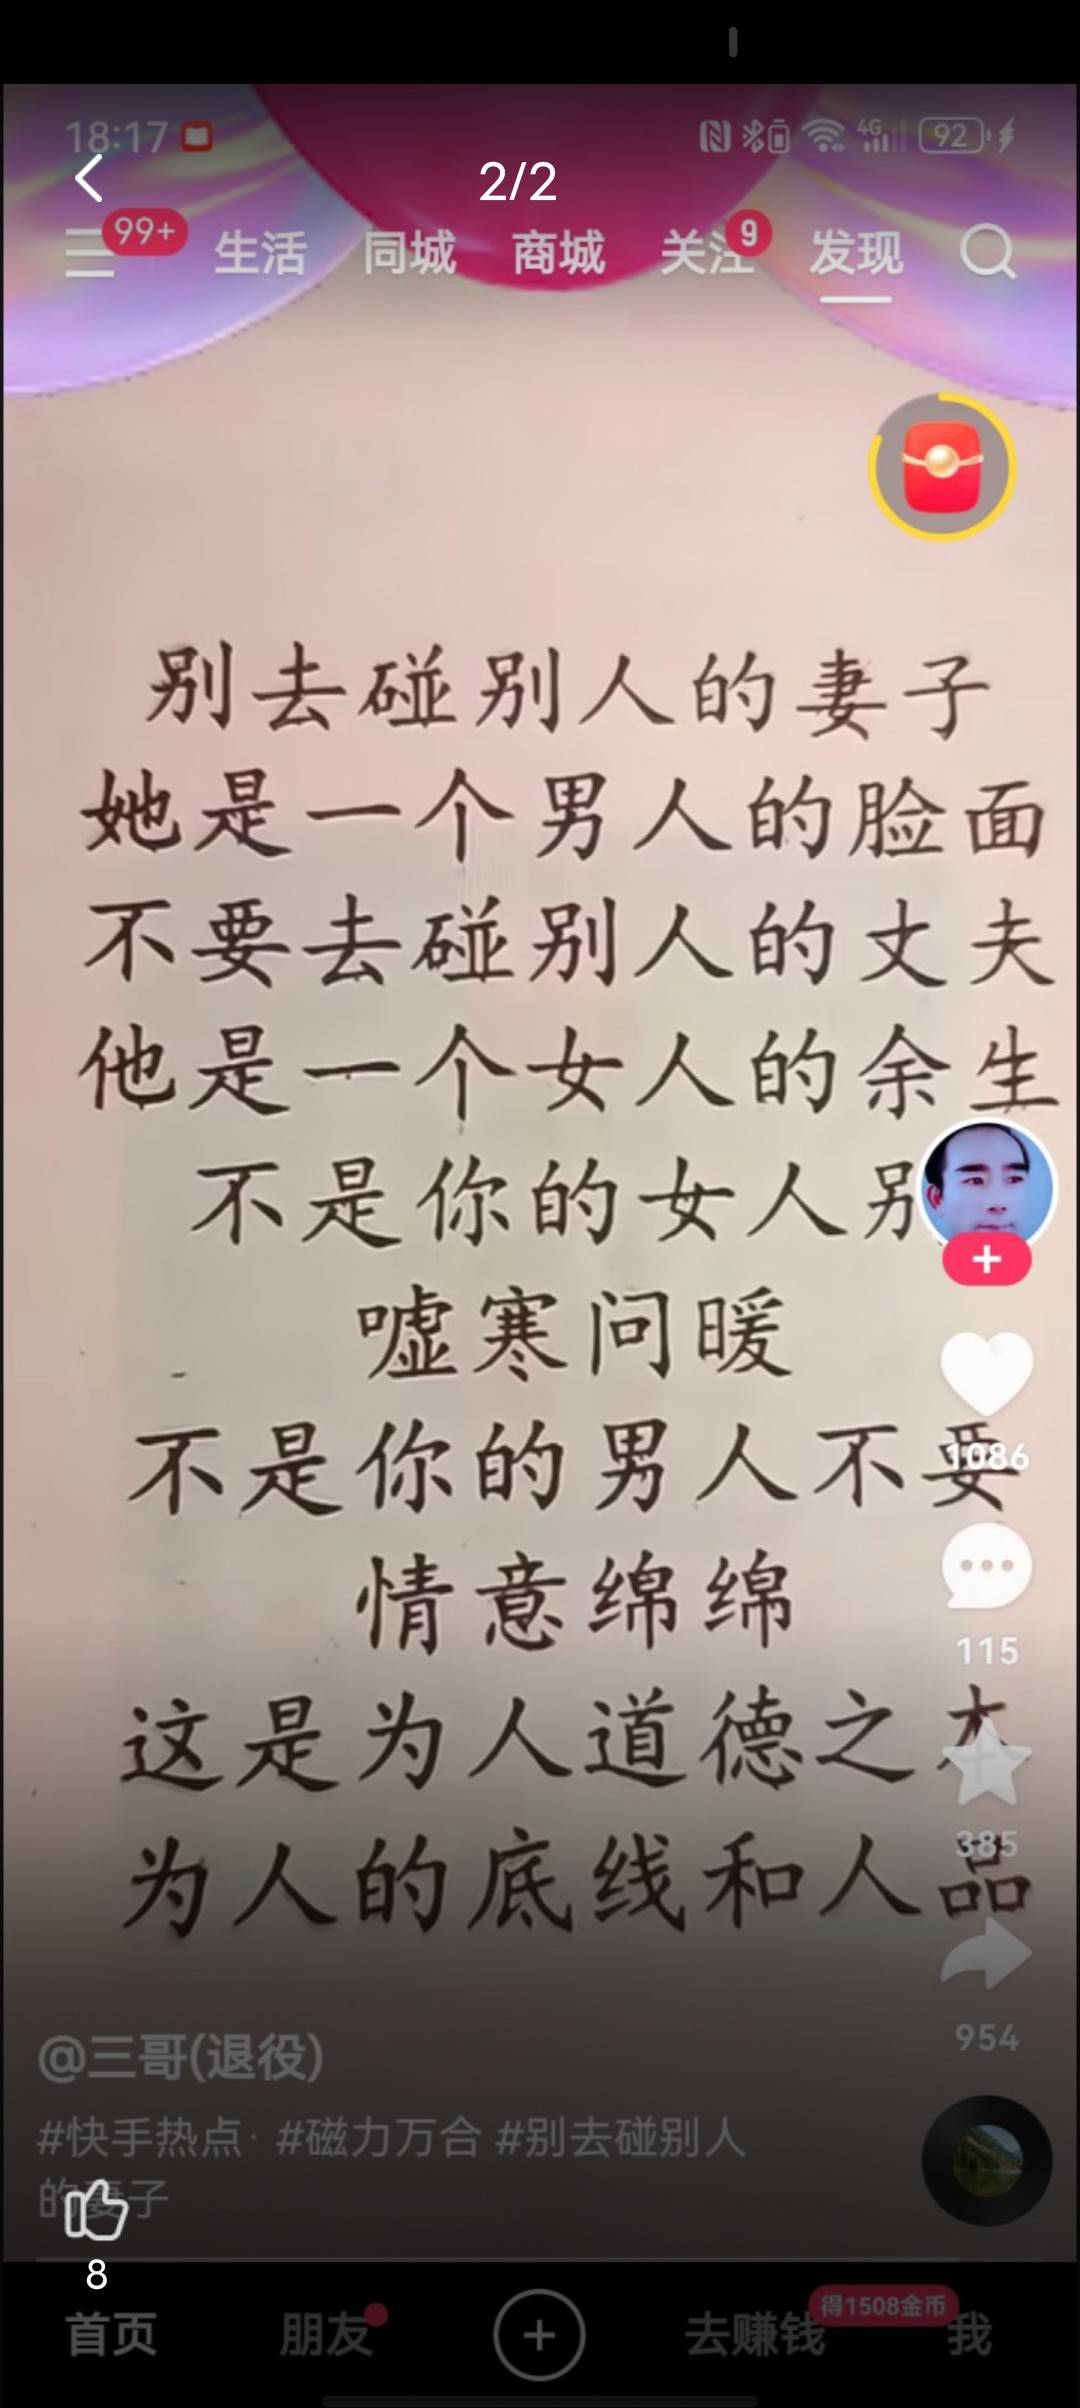 18:17
4G
92
2/2
99+
生活 同城 商城 关注 9 发现
别去碰别人的妻子
她是一个男人的脸面
不要去碰别人的丈夫
他是一个女人的余生
不是你的女人别
嘘寒问暖
不是你的男人不要
情意绵绵
这是为人道德之本
为人的底线和人品
1086
115
385
954
@三哥(退役)
#快手热点· #磁力万合 #别去碰别人
的妻子
8
得1508金币
首页 朋友 去赚钱 我